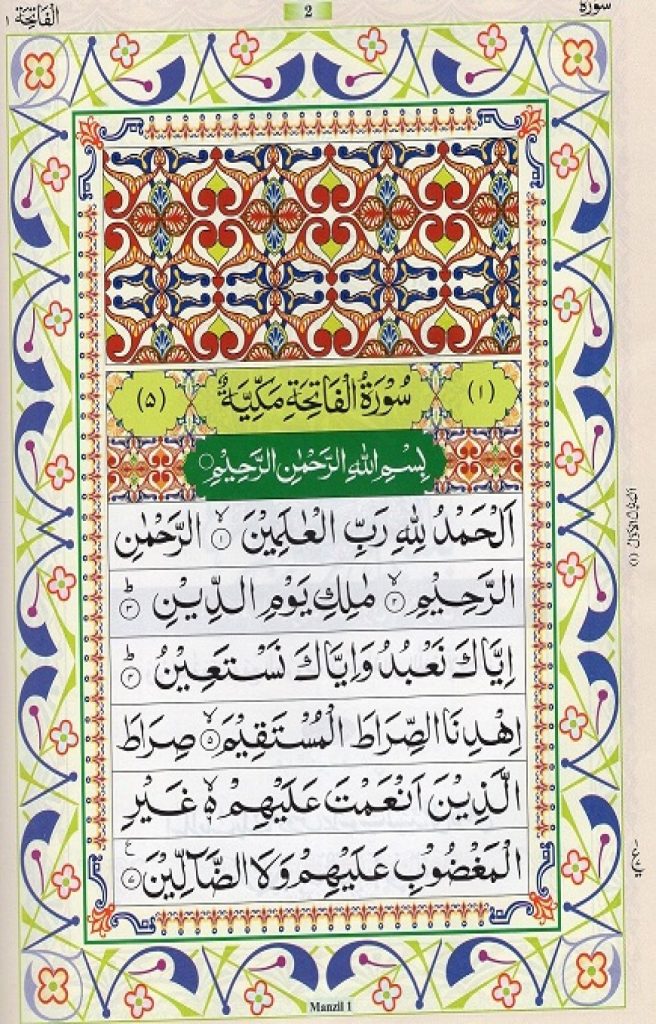 سورة 2 الفاتحة ١
(١) سُوْرَةُ الْفَاتِحَةِ مَكِّيَّةٌ (٥)
بِسْمِ اللهِ الرَّحْمٰنِ الرَّحِيْمِ
اَلْحَمْدُ لِلّٰهِ رَبِّ الْعٰلَمِيْنَ ۙ﴿١﴾ الرَّحْمٰنِ
الرَّحِيْمِ ۙ﴿٢﴾ مٰلِكِ يَوْمِ الدِّيْنِ ؕ﴿٣﴾
اِيَّاكَ نَعْبُدُ وَاِيَّاكَ نَسْتَعِيْنُ ؕ﴿٤﴾
اِهْدِنَا الصِّرَاطَ الْمُسْتَقِيْمَ ۙ﴿٥﴾ صِرَاطَ
الَّذِيْنَ اَنْعَمْتَ عَلَيْهِمْ ۙ۬ۦ غَيْرِ
الْمَغْضُوْبِ عَلَيْهِمْ وَلَا الضَّآلِّيْنَ ﴿٧﴾
Manzil 1